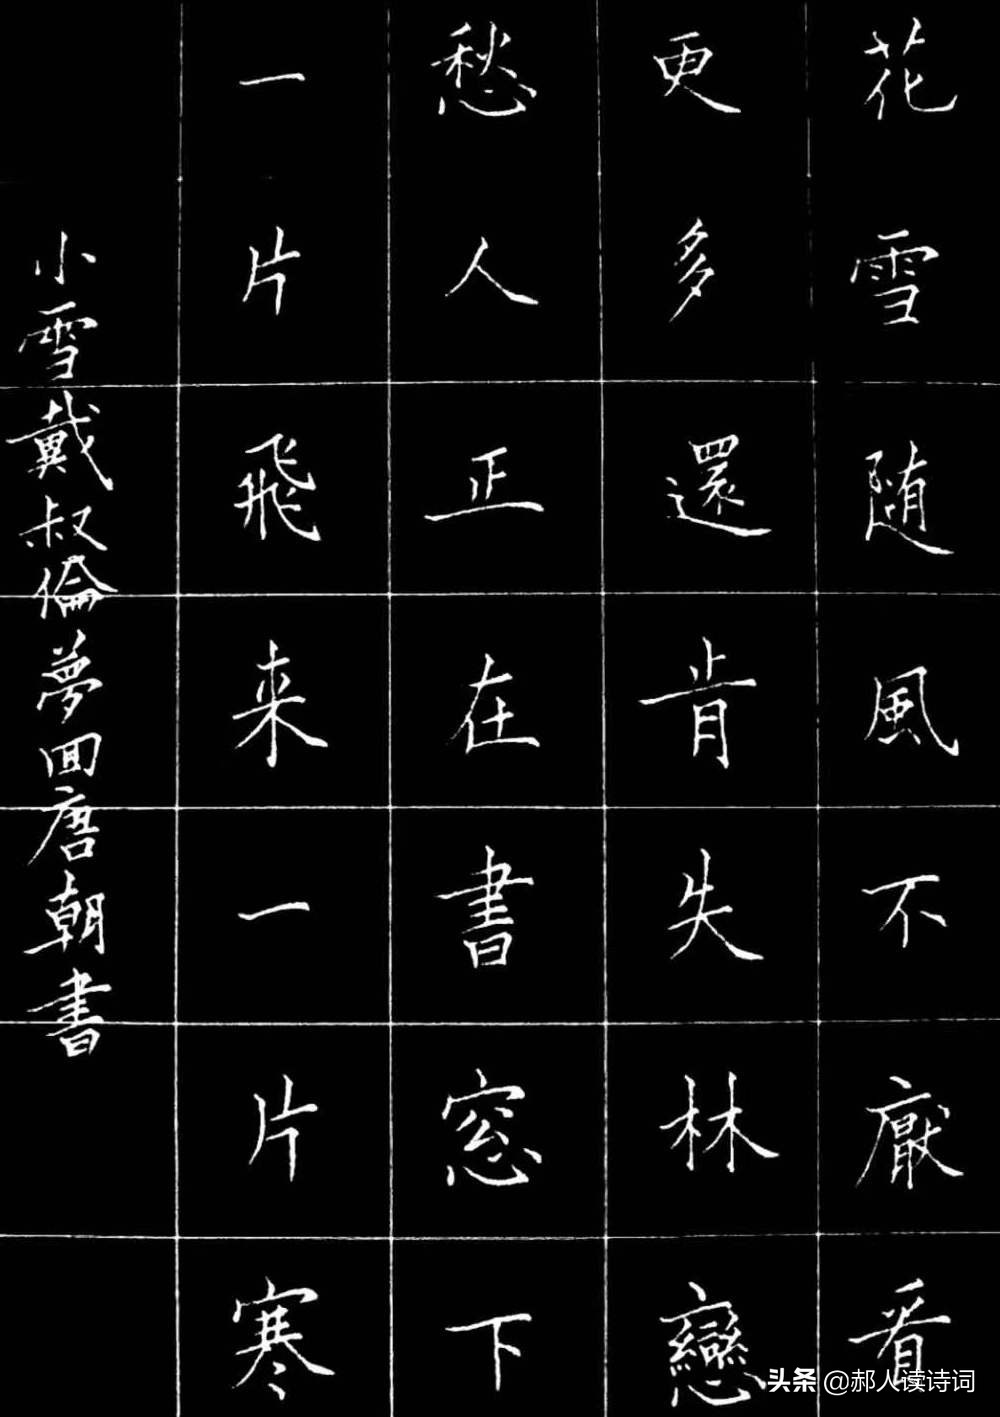 花雪随風不厭看
更多還肯失林戀
愁人正在書窓下
一片飛来一片寒
小雪戴叔倫夢回唐朝書
头条 @郝人读诗词